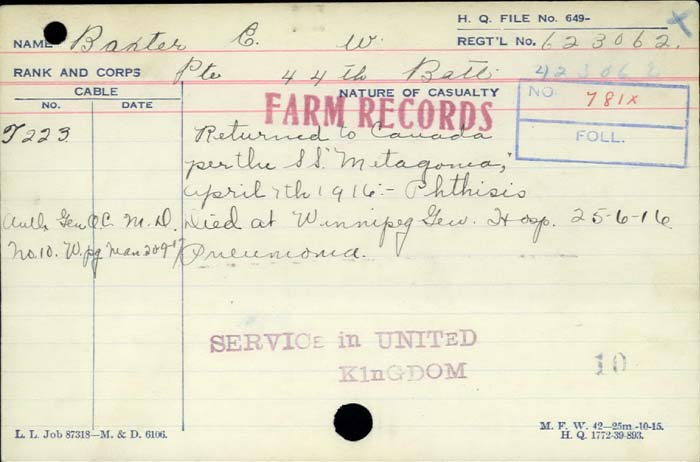 H. Q. FILE No. 649-
NAME Baxter E. W. REGT'L No. 623062.
RANK AND CORPS Pte 44th Batt. 423062
CABLE NATURE OF CASUALTY
No. DATE
FARM RECORDS
NO 781X
FOLL.
T223 Returned to Canada
per the S.S. "Metagonia,"
April 7th 1916:- Phthisis
Auth. Gen O.C. M.D. Died at Winnipeg Gen. Hosp. 25-6-16
No.10. W.pg Man 20-9-17 Pneumonia.
SERVICE in UNITED
KInGDOM
10
L. L. Job 87318—M. & D. 6106.
M. F. W. 42—25m.-10-15.
H. Q. 1772-39-893.